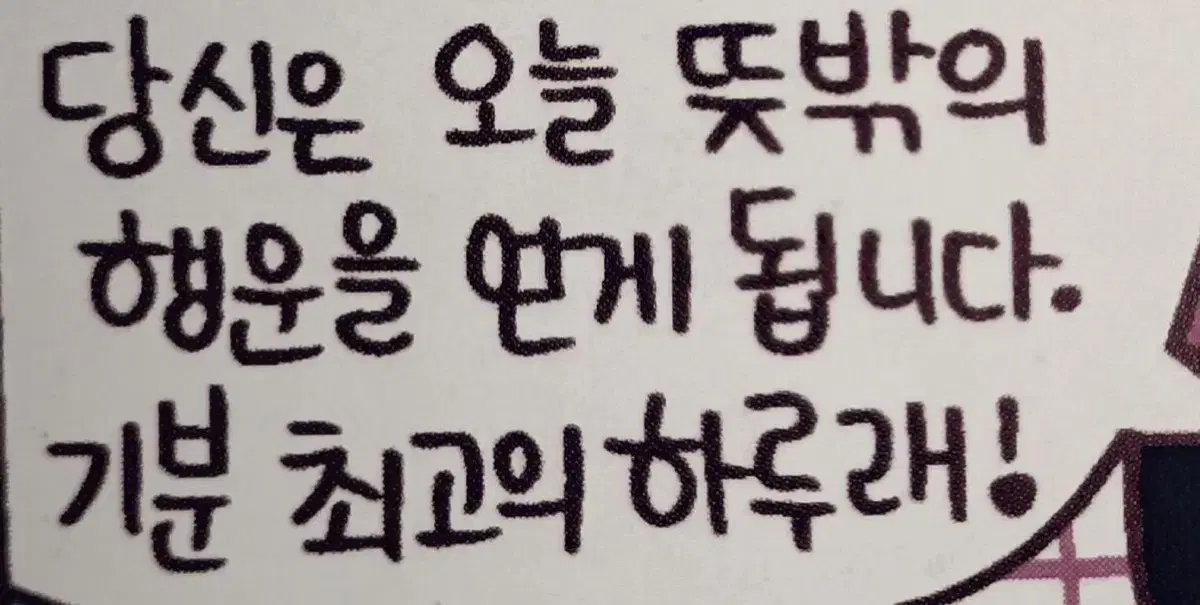 당신은 오늘 뜻밖의
행운을 얻게 됩니다.
기분 최고의 하루래!